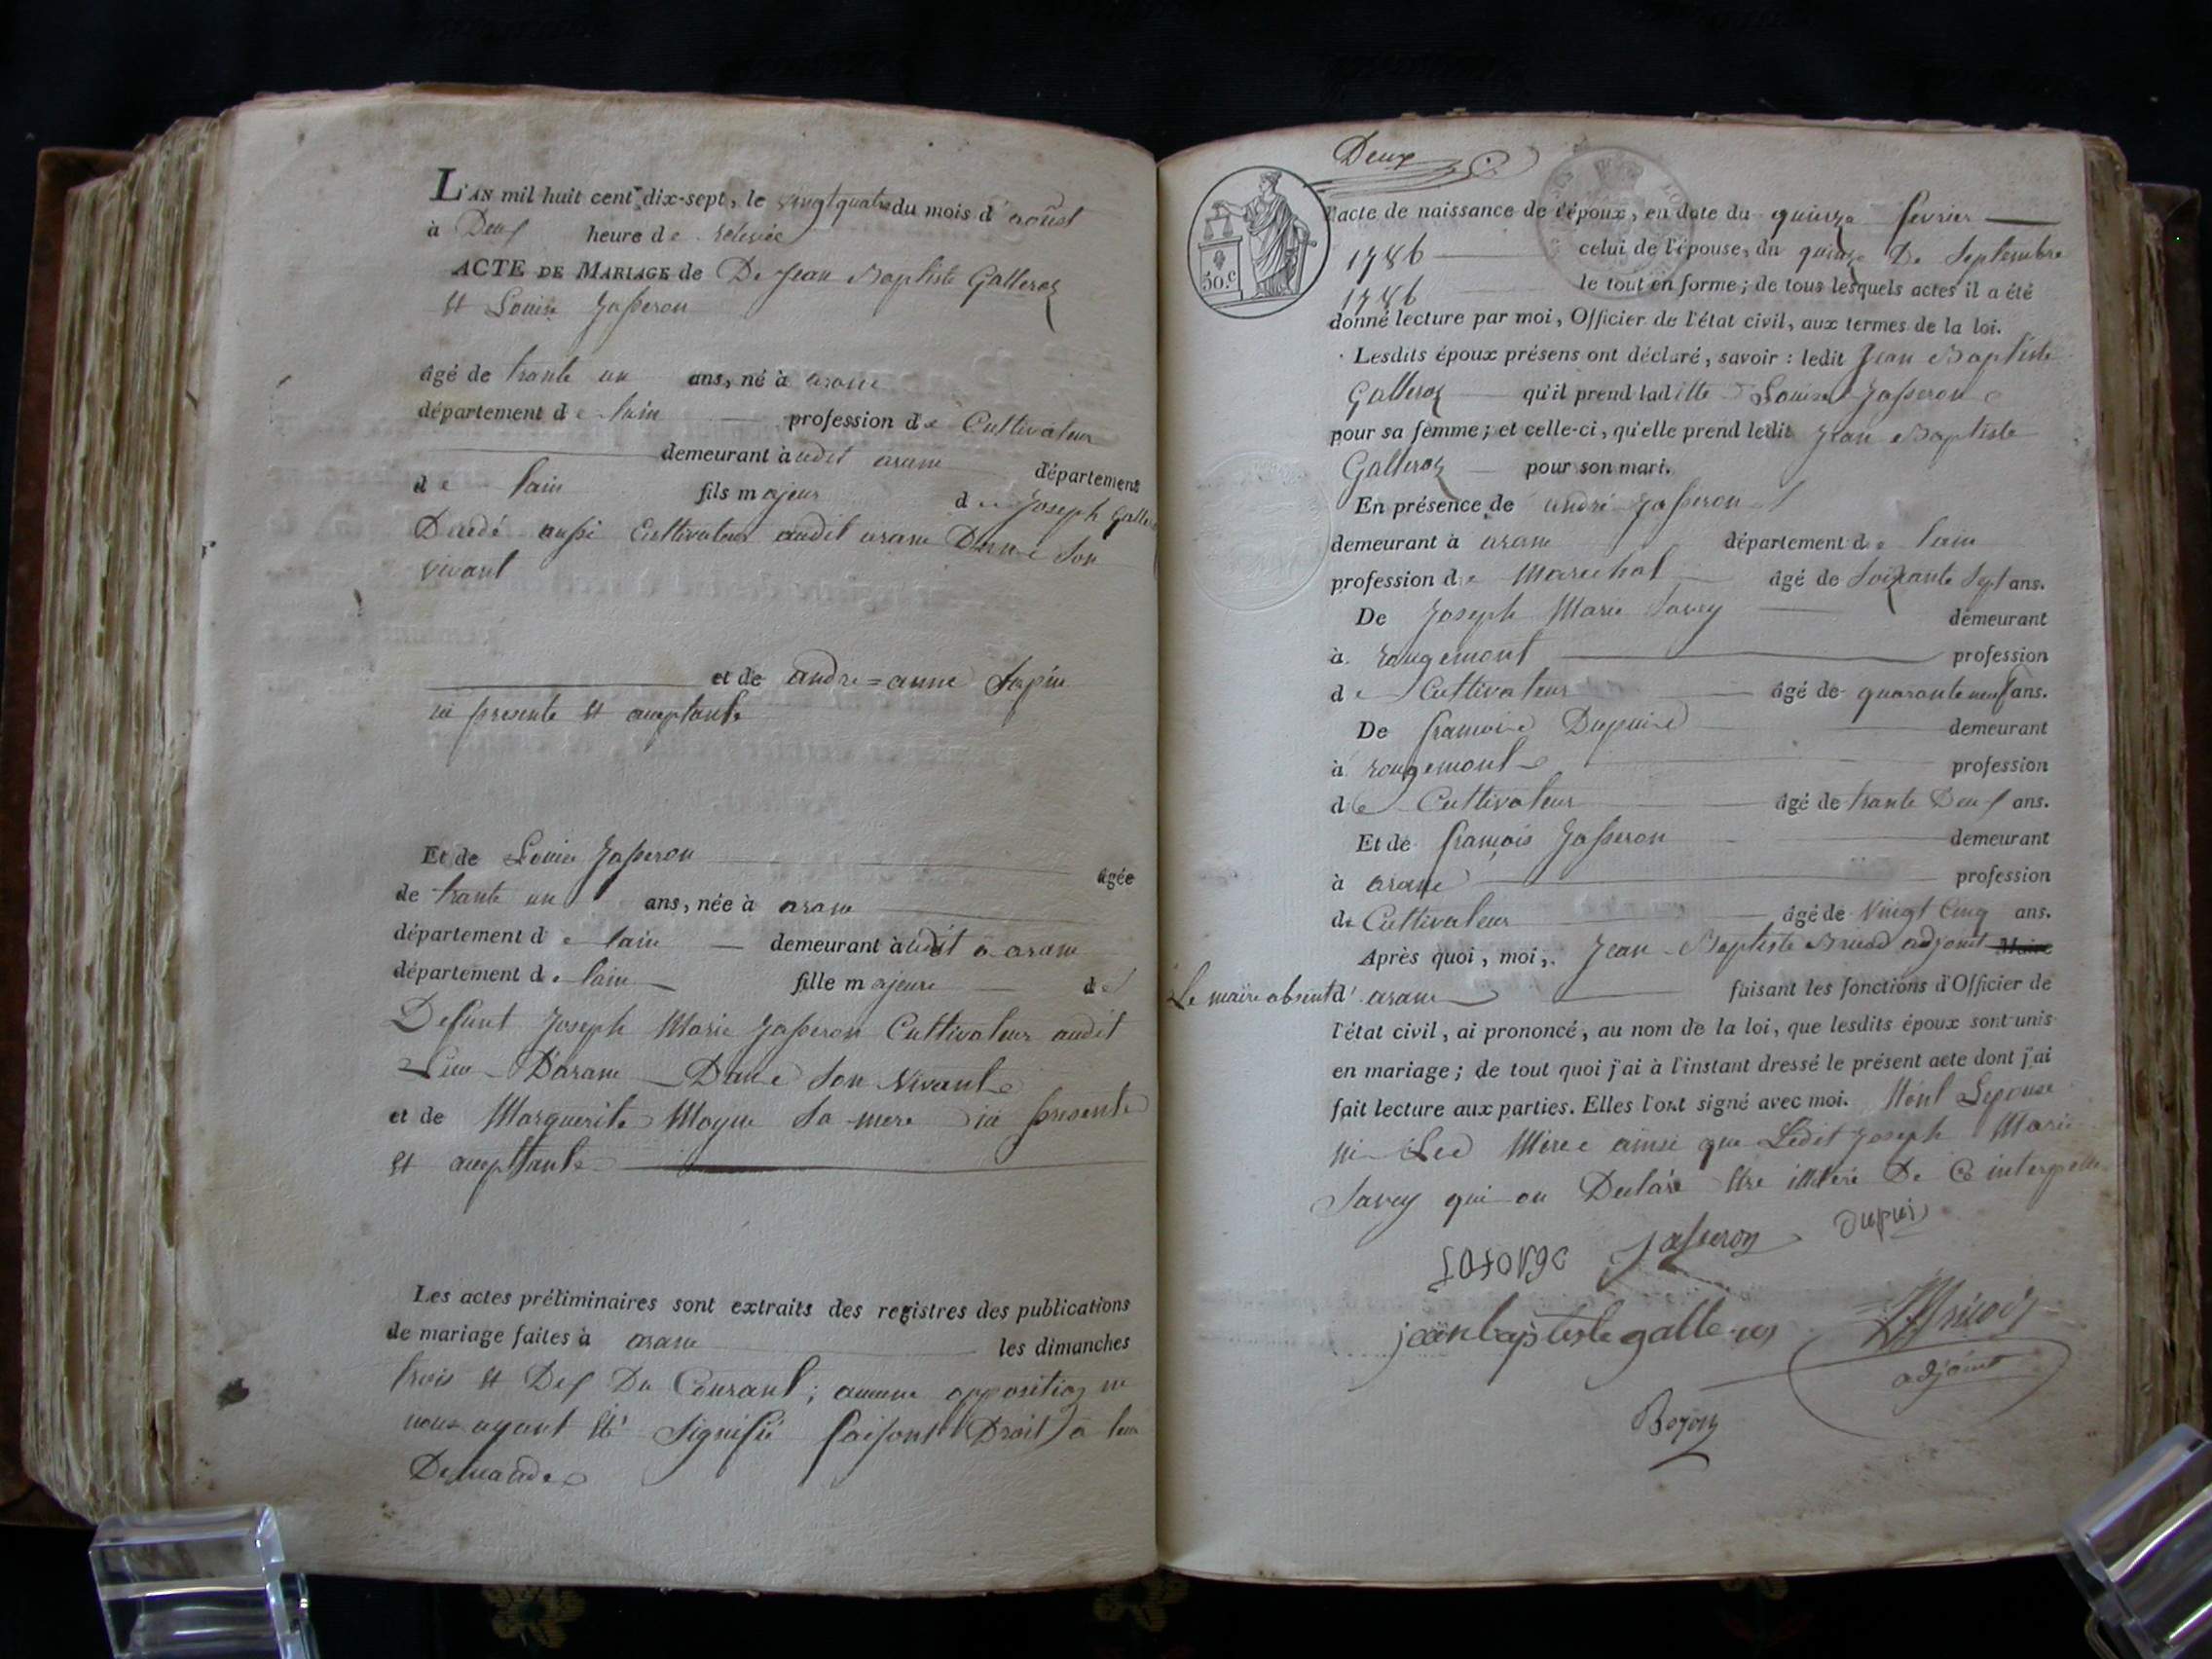 L'AN mil huit cent dix-sept, le vingt quatre du mois d'aoust
à Deux heure de relevée
ACTE DE MARIAGE de De Jean Baptiste Galleroz
Et Louise Jasseron
âgé de trante un ans, né à arane
département de lain profession de Cultivateur
demeurant à udit arane département
de lain fils majeur de Joseph Galle
Decédé aussi Cultivateur audit arane Dans Son
vivant
et de andre=anne Sapin
ici presente Et aceptante
Et de Louise Jasseron âgée
de trante un ans, née à arane
département de lain demeurant à udit a arane
département de lain fille majeure de
Defunt Joseph Marie Jasseron Cultivateur audit
Lieu D'arane Dans Son Vivant
et de Marguerite Moyne Sa mere ici presente
Et aceptante
Les actes préliminaires sont extraits des registres des publications
de mariage faites à arane les dimanches
trois Et Dix Du Courant; aucune opposition ne
nous ayant Eté Signifié faisant Droit a leur
Demande
Deux
50.c
l'acte de naissance de l'époux, en date du quinze fevrier
1786 celui de l'épouse, du quinze De Septembre
1786 le tout en forme; de tous lesquels actes il a été
donné lecture par moi, Officier de l'état civil, aux termes de la loi.
Lesdits époux présens ont déclaré, savoir: ledit Jean Baptiste
Galleroz qu'il prend laditte Louise Jasseron
pour sa femme; et celle-ci, qu'elle prend ledit Jean Baptiste
Galleroz pour son mari.
En présence de andré Jasseron
demeurant à arane département de lain
profession de Marechal âgé de Soixante Sept ans.
De Joseph Marie Savey demeurant
à rougemont profession
de Cultivateur âgé de quarante neuf ans.
De francois Dupuis demeurant
à rougemont profession
de Cultivateur âgé de trante Deux ans.
Et de françois Jasseron demeurant
à arane profession
de Cultivateur âgé de Vingt Cinq ans.
Après quoi, moi, Jean Baptiste adjoint Maire
Le maire absent d'arane faisant les fonctions d'Officier de
l'état civil, ai prononcé, au nom de la loi, que lesdits époux sont unis
en mariage; de tout quoi j'ai à l'instant dressé le présent acte dont j'ai
fait lecture aux parties. Elles l'ont signé avec moi. Non L'epouse
ni Les Meres ainsi que Ledit Joseph Marie
Savey qui on Declaré Etre illitéré De Ce interpelle
Jasseron Dupuis
jean baptiste galleroz
adjoint